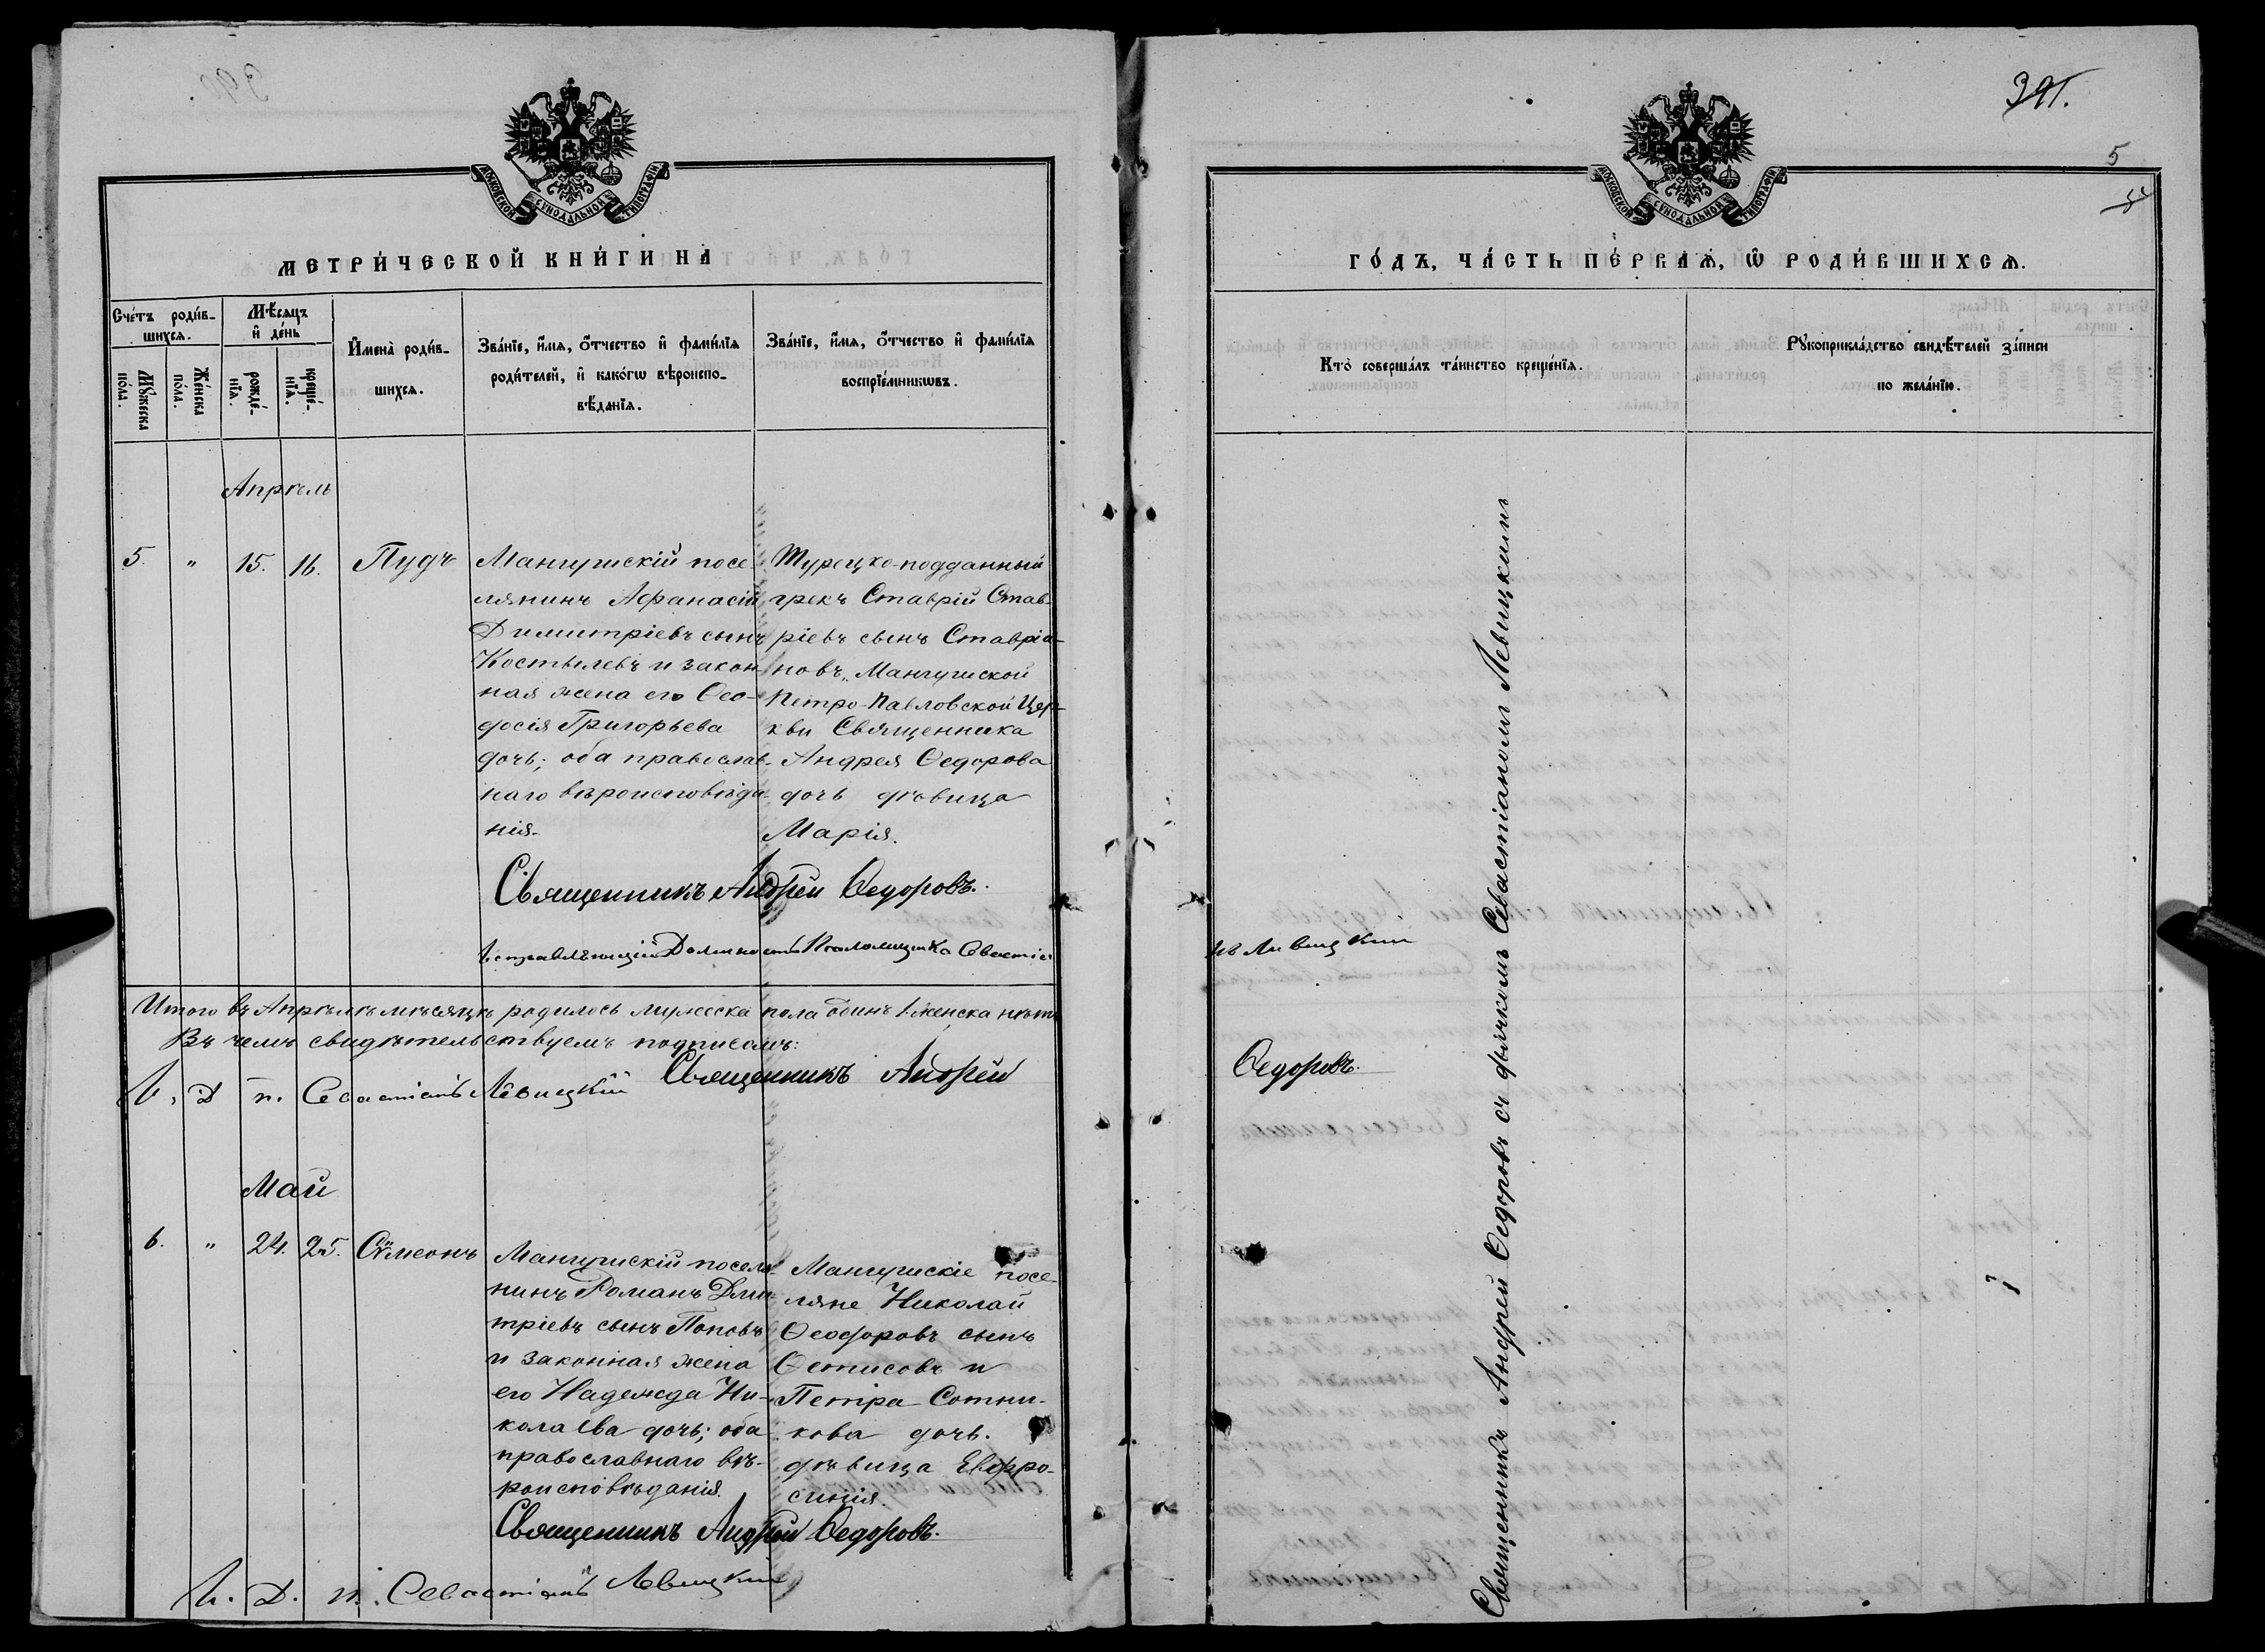 391.
5
5
МОСКОВСКОЙ СУНОДАЛЬНОЙ ТИПОГРАФІИ
МЕТРИ́ЧЕСКОЙ КНИ́ГИ НА
Сче́тъ роди́в-
шихсѧ.
Мѣ́сѧцъ
и҆ де́нь
Мꙋ́жеска
по́ла.
Же́нска
по́ла.
рожде́-
нїѧ.
креще́-
нїѧ.
И҆мена̀ роди́в-
шихсѧ.
Зва́нїе, и҆́мѧ, ѻ҆́тчество и҆ фами́лїѧ
роди́телей, и҆ како́гѡ вѣроиспо-
вѣ́данїѧ.
Зва́нїе, и҆́мѧ, ѻ҆́тчество и҆ фами́лїѧ
воспрїе́мникѡвъ.
Апрѣль
5. " 15. 16. Пудъ
Мангушскій посе-
лянинъ Афанасій
Димитріевъ сынъ
Костылевъ и закон-
ная жена его Ѳео-
досія Григорьева
дочь; оба православ-
наго вѣроисповѣда-
нія.
Турецко-подданный
грекъ Ставрій Став-
ріевъ сынъ Ставріа-
новъ, Мангушской
Петро-Павловской Цер-
кви Священника
Андрея Ѳедорова
дочь дѣвица
Марія.
Священникъ Андрей Ѳедоровъ.
Исправляющій Должность Псаломщика Севастіа
Итого въ Апрѣлѣ мѣсяцѣ родилось мужеска пола одинъ 1. женска нѣтъ
Въ чемъ свидѣтельствуемъ подписомъ:
Священникъ Андрей
И. Д. п. Севастіанъ Левицкій
Май
6. " 24. 25. Сѷмеонъ
Мангушскій поселя-
нинъ Романъ Дми-
тріевъ сынъ Поповъ
и законная жена
его Надежда Ни-
колаева дочь; оба
православнаго вѣ-
роисповѣданія.
Мангушскіе посе-
ляне Николай
Ѳеодоровъ сынъ
Ѳетисовъ и
Петра Сотни-
кова дочь.
дѣвица Евфро-
синія.
Священникъ Андрей Ѳедоровъ.
И. Д. п. Севастіанъ Левицкій
МОСКОВСКОЙ СУНОДАЛЬНОЙ ТИПОГРАФІИ
ГО́ДЪ, ЧА́СТЬ ПЕ́РВАѦ, Ѡ҆ РОДИ́ВШИХСѦ.
Кто̀ соверша́лъ та́инство креще́нїѧ.
Рꙋкоприкла́дство свидѣ́телей за́писи
по жела́нїю.
нъ Левицкий
Ѳедоровъ.
Священникъ Андрей Ѳедоровъ съ дьячкомъ Севастіаномъ Левицкимъ